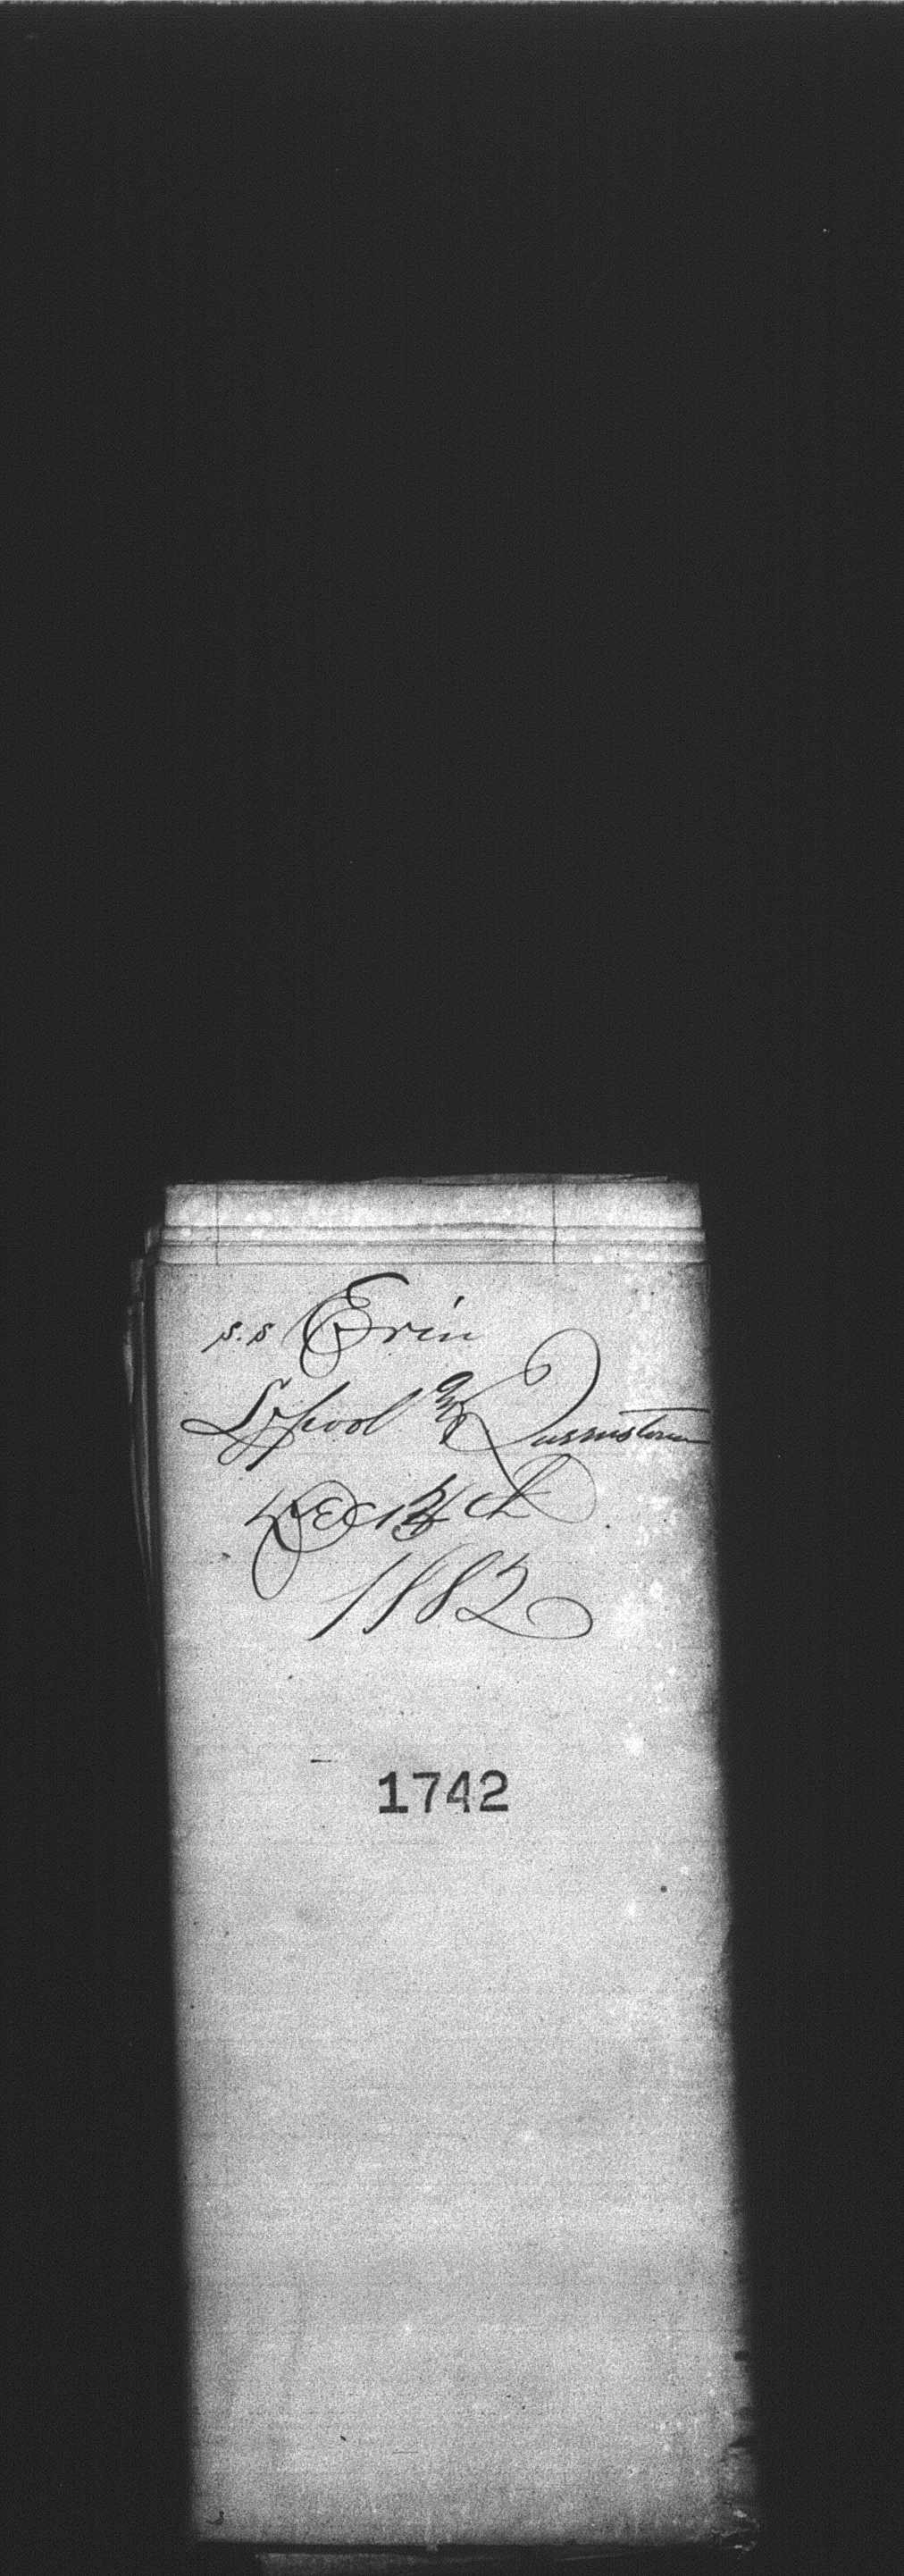 s.s Erin
L'pool & Queenstown
Dec
1882
1742